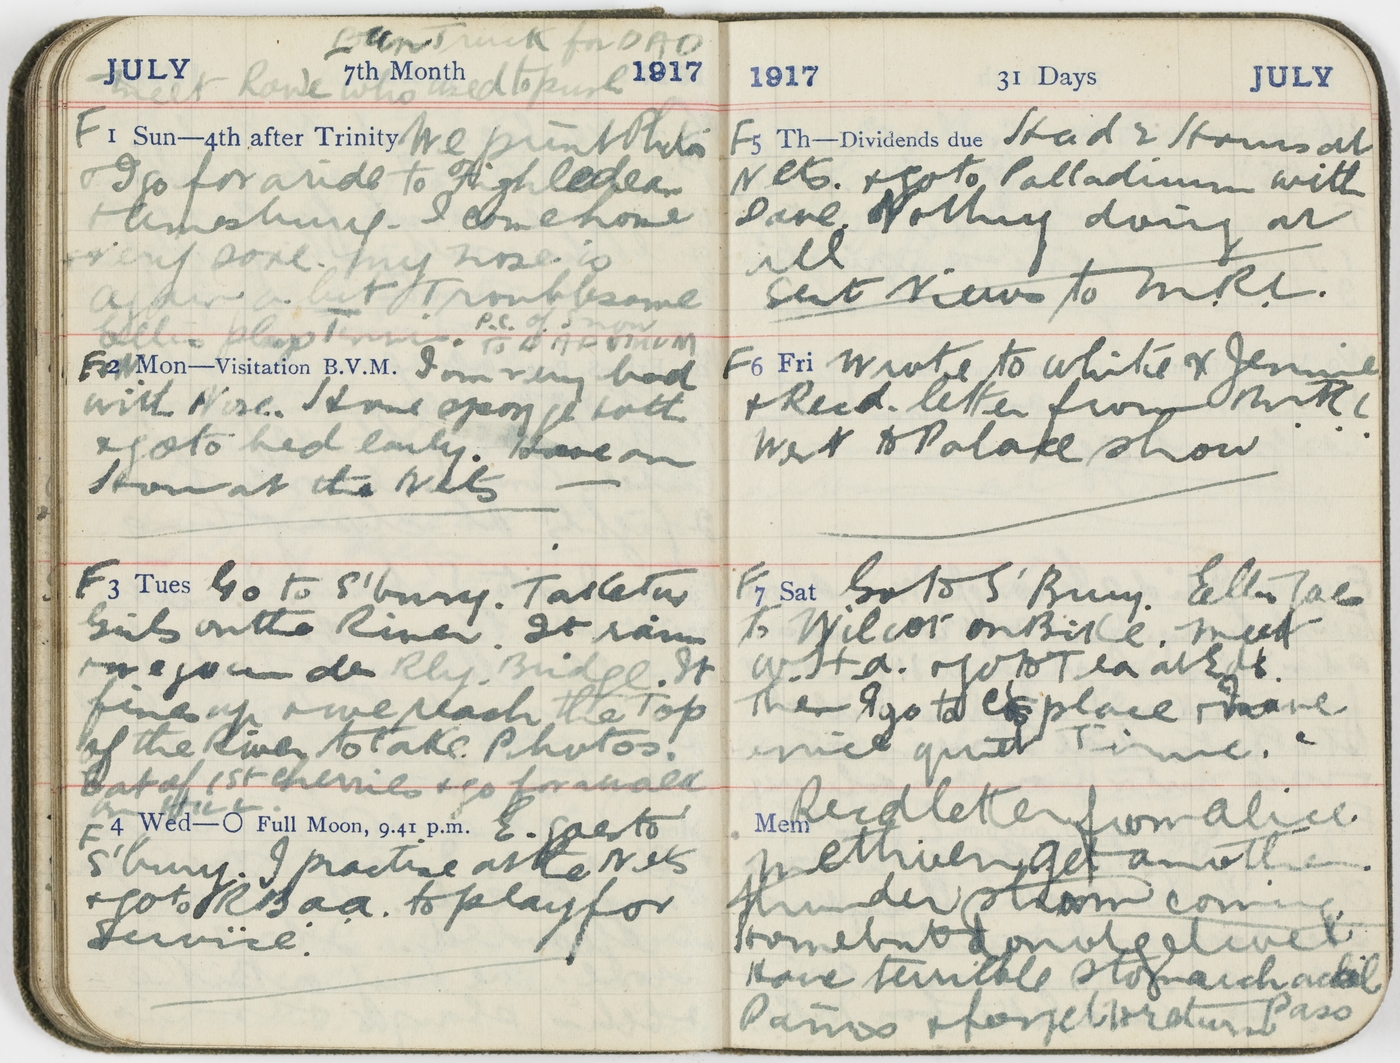 Truck for DAD
JULY 7th Month 1917
meet Rowe who used to push
F 1 Sun—4th after Trinity We print Photos
& I go for a ride to Figheldean
& Amesbury. I come home
very sore. my nose is
again a bit Troublesome
Ellis plays Tennis. P.C. of Snow
to DAD & MUM
F 2 Mon—Visitation B.V.M. I am very bad
with Nose. Have sponge bath
& go to bed early. Have an
Hour at the Nets —
F 3 Tues Go to S'bury. Take two
Girls on the River. It rains
& we go under Rly. Bridge. It
fines up & we reach the Top
of the River to take Photos.
Eat of 1st cherries & go for a walk
on Hill.
F 4 Wed—O Full Moon, 9.41 p.m. E. goes to
S'bury. I practise at the Nets
& go to RBaa. to play for
Service.
1917 31 Days JULY
F 5 Th—Dividends due Had 2 Hours at
Nets. & go to Palladium with
Dave. Nothing doing at
all
Sent Views to M.R.C.
F 6 Fri Wrote to White & Jennie
& Recd. letter from
Went to Palace show
F 7 Sat Go to S'Bury. Ellis goes
to Wilcot on Bike. meet
W.Hd. & go to Tea at
Then I go to place & have
a nice quiet Time.
Mem Recd letter from Alice
Methven. get another
thunder storm coming
Home but do not get wet.
Have terrible stomach
Pains & forget to return Pass